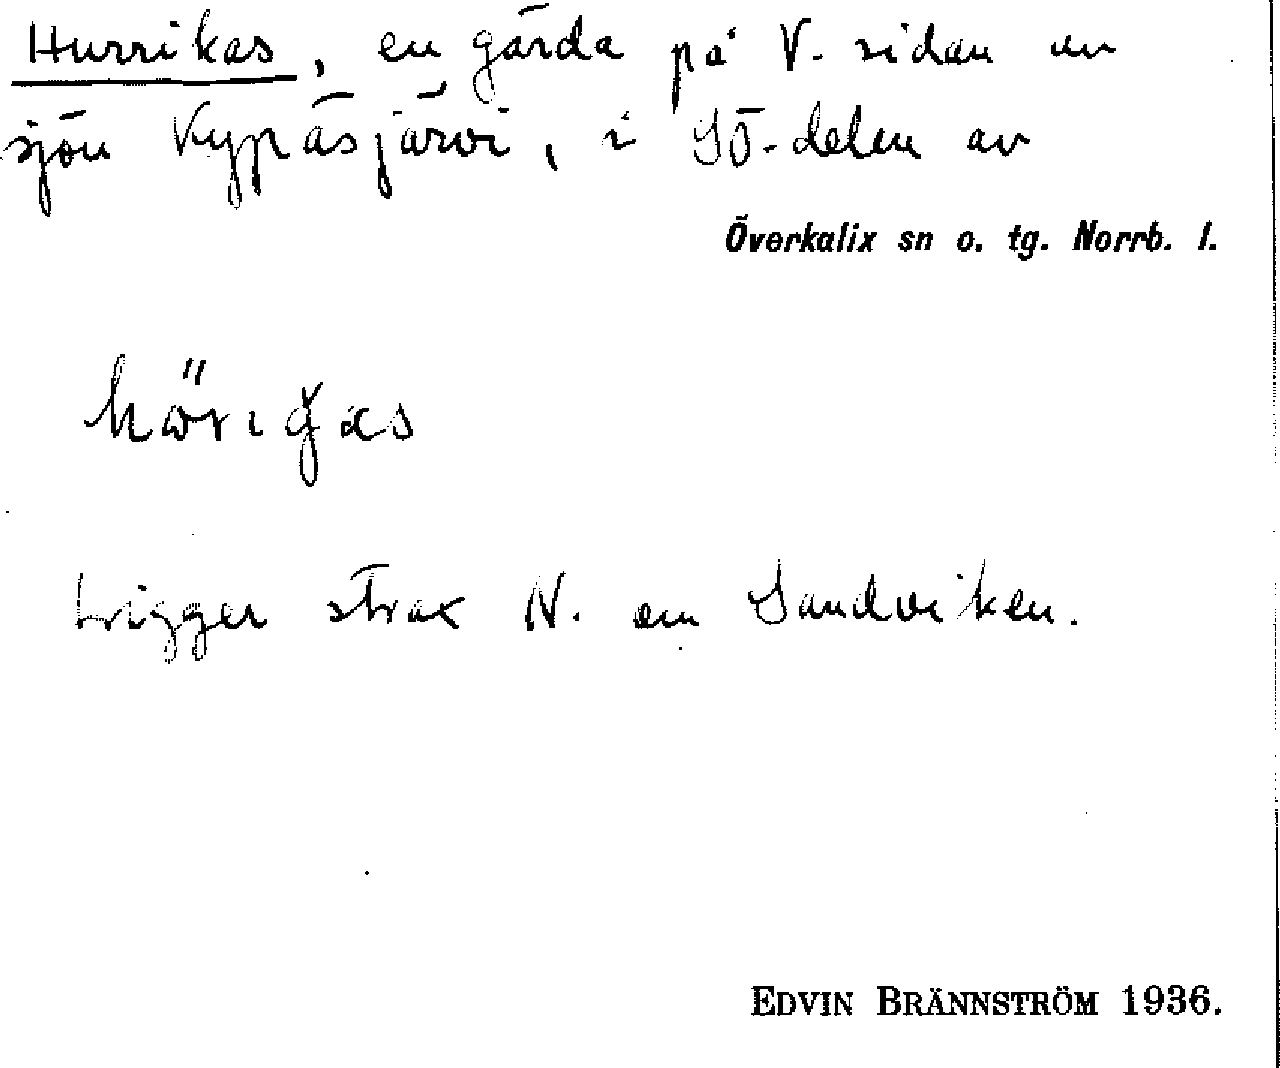 Hurrikas, en gärda på V. sidan av
sjön Vyppäsjärvi, i SÖ-delen av
Överkalix sn o. tg. Norrb. l.
Ligger strax N. om Sandviken.
EDVIN BRÄNNSTRÖM 1936.